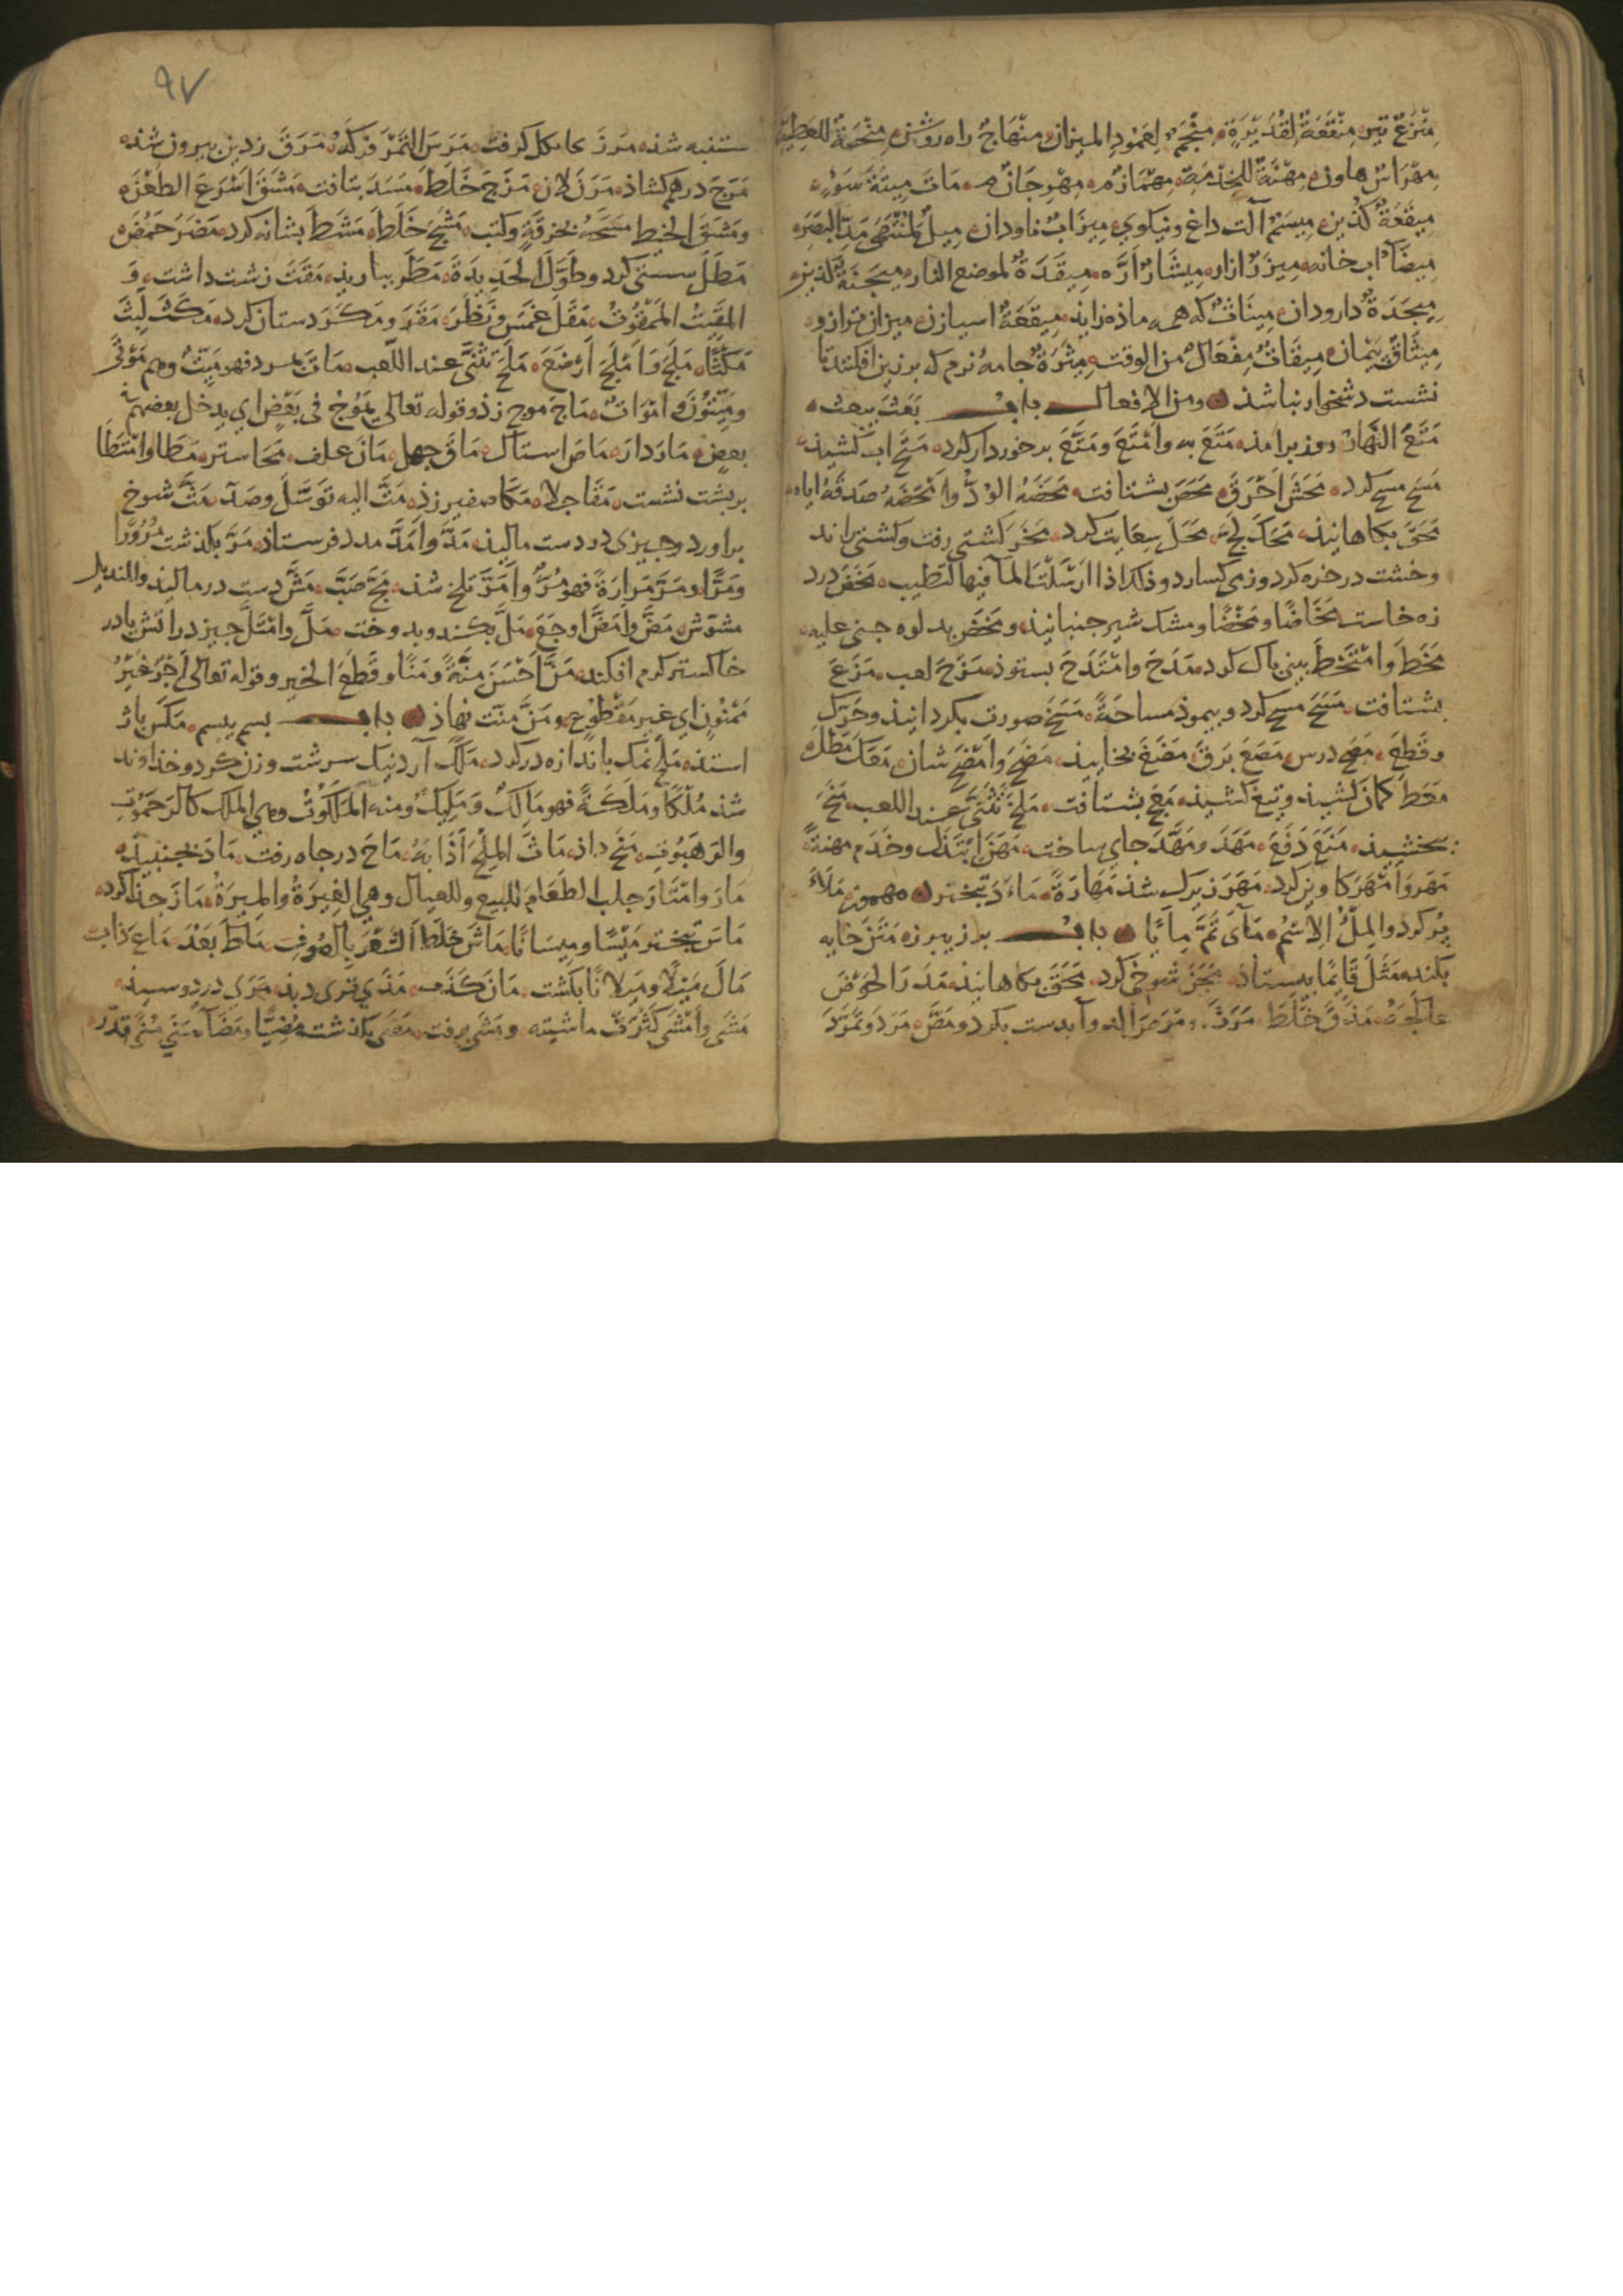 مِنْزَعٌ تير مِنْقَعَةٌ لِقُدَيْرَةٍ مِنْجَمٌ لِعَمُودِ الميزان مِنْهَاجٌ راه روشن مِنْحَةٌ للعَطِيَّة
مِهْرَاسٌ هاون مِهْنَةٌ للخِدْمَةِ مِهْمَازٌ مِهْرِجَانٌ مَاتَ مِيتَةَ سَوْءٍ
مِيقَعَةٌ كذين مِيسَمٌ آلت داغ ونيكوي مِيزَابٌ ناودان مِيلٌ لِمُنْتَهَى مَدِّ البَصَرِ
مِيضَآ اب خانه مِيزَرٌ ازار مِيشَارٌ ارّه مِيقَدَةٌ لموضع النار مِيجَنَةٌ كذين
مِيجَدَةٌ دارودان مِينَاثٌ كه همه ماذه زايذ مِيقَعَةٌ اسيازن ميزان ترازو
مِيثَاقٌ پيمان مِيقَاتٌ مِفْعَالٌ من الوقت مِيثَرَةٌ جامهٔ نرم كه بر زين افكنند تا
نشست دشخوار نباشذ ومن الافعال باب بَعَثَ يبعث
مَتَعَ النَّهَارُ روز برامذ مَتَعَ به وأَمْتَعَ ومَتَّعَ برخوردار كرد مَتَحَ اب كشيذ
مَسَحَ مسح كرد مَحَشَ اَحْرَقَ مَحَصَ بشتافت مَحَضَهُ الوُدَّ واَمْحَضَهُ صَدَقَهُ اياه
مَحَقَ بكاهانيذ مَحَكَ لَجَّ مَحَلَ سِعَايت كرد مَخَرَ كشتى رفت وكشتى راند
وخشت درخره كرد وزمى كسارد وذلك اذا ارسلت المآ فيها لتطيب مَخَضَ درد
زه خاست مَخَاضًا ومَخْضًا ومشك شير جنبانيذ ومَخَضَ بدلوه جنى عليه
مَخَطَ وامْتَخَطَ بينى پاك كرد مَدَحَ وامْتَدَحَ بستوذ مَزَحَ لعب مَزَعَ
بشتافت مَسَحَ مسح كرد وبيموذ مساحَةً مَسَخَ صورت بكردانيذ وحَرَّك
وقَطَعَ مَصَحَ درس مَصَعَ بَرَقَ مَضَغَ بخاييذ مَضَحَ واَمْضَحَ شان مَعَكَ مَطَلَ
مَغَطَ كمان كشيذ وتيغ كشيذ مَعَجَ بشتافت مَلَخَ تَثَنَّى عند اللعب مَنَحَ
بخشيذ مَنَعَ دَفَعَ مَهَدَ ومَهَّدَ جاى ساخت مَهَنَ اِبْتَذَلَ وخَدَمَ مهنةً
مَهَرَ وأَمْهَرَ كاوين كرد مَهَرَ زيرك شذ مَهَارَةً مَاءَدَ تبختر مهموز مَلَأَ
پُر كرد والمِلْءُ الاِسْمُ مَآى تَمَّ مِايًا باب برز يبرز مَتَنَ خايه
بكند مَثَلَ قَايِمًا بيستاذ مَجَنَ شوخى كرد مَحَقَ بكاهانيذ مَدَرَ الحَوْضَ
عالَجَهُ مَذَقَ خَلَطَ مَرَدَ ومَرَصَ الذ وآبدست بكرد ومَصَّ مَرَدَ وتَمَرَّدَ
٩٧
ستنبه شذ مَرَزَ كرفت مَرَسَ التَّمْرَ فَرَكَهُ مَرَقَ زدين بيرون شذ
مَرَجَ درهم كشاذ مَرَنَ لان مَزَجَ خَلَطَ مَسَدَ بتافت مَشَقَ اَسْرَعَ الطعْنَ
ومَشَقَ الخيط مَسَحَهُ بخِرقَةٍ وكتب مَشَجَ خَلَطَ مَشَطَ بشانه كرد مَضَرَ حَمُضَ
مَطَلَ سستى كرد وطَوَّلَ الحَدِيدَةَ مَطَرَ بباريذ مَقَتَ زشت داشت وَ
المَقِيتُ المَمْقُوتُ مَقَلَ غَمَسَ ونَظَرَ مَقَرَ ومَكَرَ دستان كرد مَكَثَ لَبِثَ
مَكْثًا مَلَجَ وَاَمْلَجَ اَرْضَعَ مَلَخَ تَثَنَّى عند اللَّعِب مَاتَ بمرد فهو مَيِّتٌ وهم مَوْتَى
ومَيِّتُونَ واَمْوَاتٌ مَاجَ موج زذ وقوله تعالى يَمُوجُ فى بَعْضٍ اى يدخل بعضهم فى
بعض مَارَ دَارَ مَاصَ استاك مَاقَ جهل مَانَ علف مَحَا ستر مَطَا وامْتَطَا
بر پشت نشست مَقَا جلا مَكَا صفير زذ مَتَّ اليه تَوَسَّلَ وصَلَه مَثَّ شوخ
براورد وچيزى در دست ماليذ مَدَّ واَمَدَّ مدد فرستاذ مَرَّ بكذشت مُرُورًا
ومَرًّا ومَرَّ مَرَارَةً فهو مُرٌّ واَمَرَّ تلخ شذ مَجَّ صَبَّ مَشَّ دست درماليذ والمنديل
مشوش مَضَّ واَمَضَّ اوجَعَ مَلَّ بكند وبدوخت مَلَّ وامْتَلَّ چيز در آتش يا در
خاكستر كرم افكند مَنَّ اَحْسَنَ مِنَّةً ومَنًّا وقَطَعَ الخير وقوله تعالى اَجْرٌ غَيْرُ
مَمْنُونٍ اى غير مَقْطُوعٍ ومَنَّ منّت نهاذ باب بسم يبسم مَكَسَ باژ
استذ مَلَحَ نمك بانداز در كرد مَلَكَ آرد نيك سرشت وزن كرد وخذاوند
شذ مُلْكًا ومَلَكَةً فهو مَالِكٌ وَمَلِيكٌ ومنه المَلَكُوتُ وهى الملك كالرَّحَمُوتِ
والرَّهَبُوتِ مَنَحَ داذ مَاثَ المِلْحَ اَذَابَهُ مَاحَ درجاه رفت مَادَ بجنبيذ
مَارَ وامْتَارَ جلب الطَّعَامَ للبيع وللعيال وهى الغِيرَةُ والمِيرَةُ مَازَ جذا كرد
مَاسَ تبختر مَيْسًا ومَيَسَانًا مَاشَ خَلَطَ الشَّعْرَ بِالصُّوفِ مَاطَ بَعُدَ مَاعَ ذاب
مَالَ مَيْلًا ومَيَلَانًا بكشت مَانَ كَذَبَ مَذَى ترى ديذ مَرَى دردوسيذ
مَشَى واَمْشَى كَثُرَتْ ماشيته ومَشَى برفت مَضَى بكذشت مُضِيًّا ومَضَآءً مَنَى مَنًى قدّر